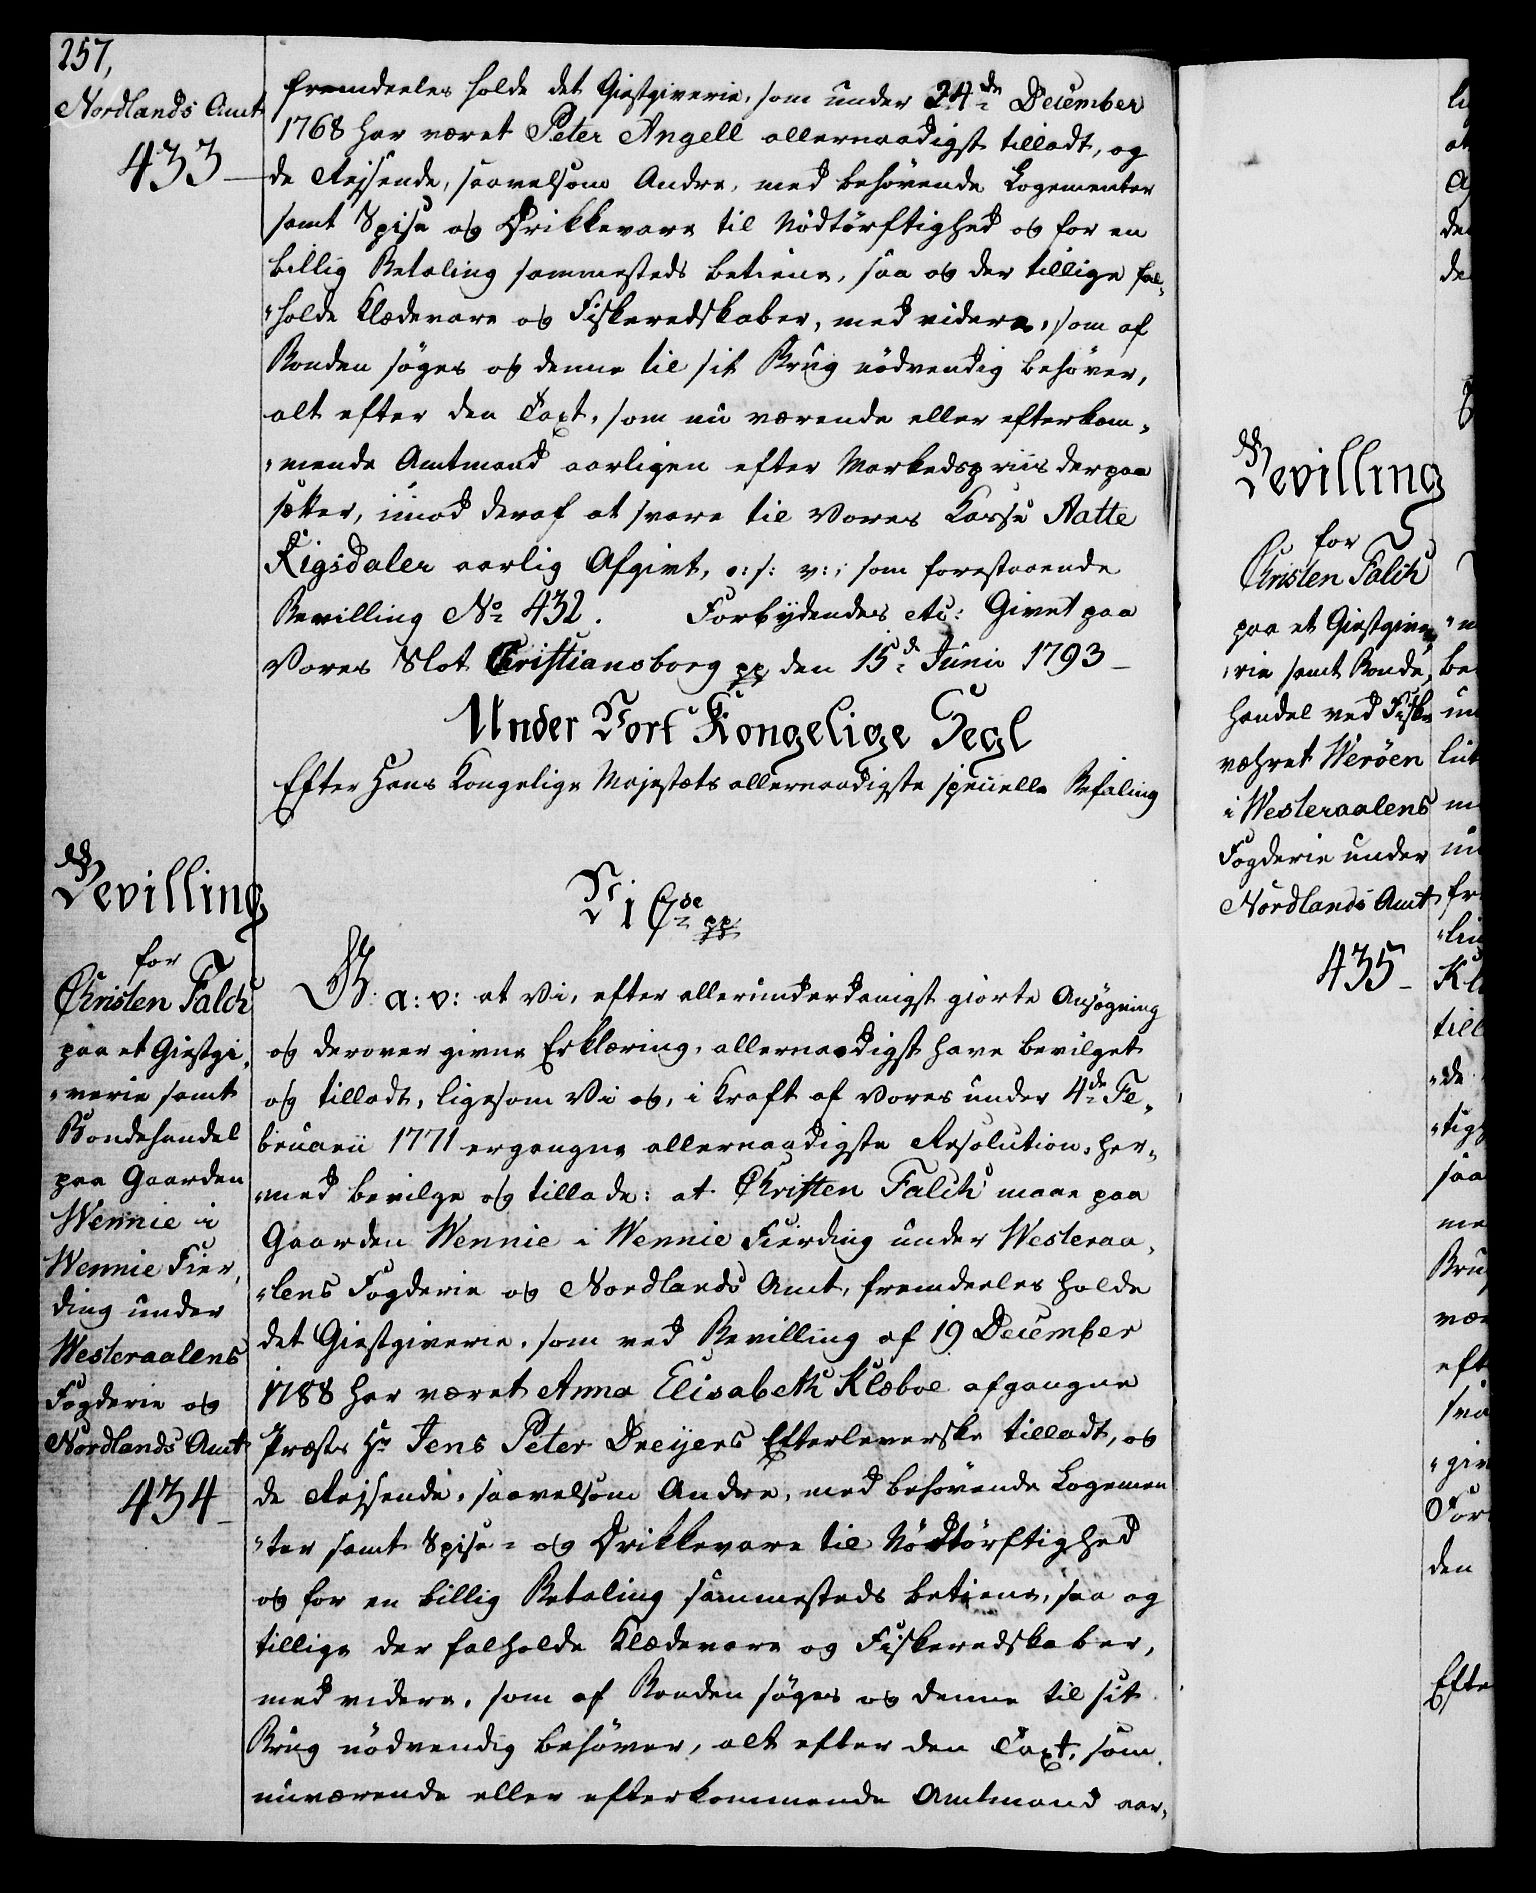 257,
Nordlands Amt
433
fremdeeles holde det Giestgiverie, som under 24de December
1768 har været Peter Angell allernaadigst tilladt, og
de Reysende, saavelsom Andre, med behövende Logementer
samt Spise og Drikkevare til Nödtörftighed og for en
billig Betaling sammesteds betiene, saa og der tillige fal„
„holde Klædevare og Fiskeredskaber, med videre, som af
Bonden söges og denne til sit Brug nödvendig behöver,
alt efter den Taxt, som nu værende eller efterkom„
„mende Amtmand aarligen efter Markedspriis derpaa
sætter, imod deraf at svare til Vores Kasse Aatte
Rigsdaler aarlig Afgivt, o: s: v:, som forestaaende
Bevilling No 432. Forbydendes etc: Givet paa
Vores Slot Christiansborg pp den 15de Junii 1793
Under Vort Kongelige Segl
Efter Hans Kongelige Majestæts allernaadigste specielle Befaling
Bevilling
for
Christen Falch
paa et Giestgi„
„verie samt
Bondehandel
paa Gaarden
Wennie i
Wennie Fier„
ding under
Westeraalens
Fogderie og
Nordlands Amt
434
Vi C 7de pp
G: a: v: at Vi, efter allerunderdanigst giorte Ansögning
og derover givne Erklæring, allernaadigst have bevilget
og tilladt, ligesom Vi og, i Kraft af Vores under 4de Fe„
bruarii 1771 ergangne allernaadigste Resolution, her„
„med bevilge og tillade: at Christen Falch maae paa
Gaarden Wennie i Wennie Fierding under Westeraa„
„lens Fogderie og Nordlands Amt, fremdeeles holde
det Giestgiverie, som ved Bevilling af 19 December
1788 har været Anna Elisabeth Klæboe afgangne
Præst Hr Jens Peter Dreyers Efterleverske tilladt, og
de Reysende, saavelsom Andre, med behövende Logemen
„ter samt Spise- og Drikkevare til Nödtörftighed
og for en billig Betaling sammesteds betiene, saa og
tillige der falholde Klædevare og Fiskeredskaber,
med videre, som af Bonden söges og denne til sit
Brug nödvendig behöver, alt efter den Taxt, som
nuværende eller efterkommende Amtmand aar„
Bevilling
for
Christen Falch
paa et Giestgive„
„rie samt Bonde„
handel ved Fiske
væhret Weröen
i Westeraalens
Fogderie under
Nordlands Amt
435